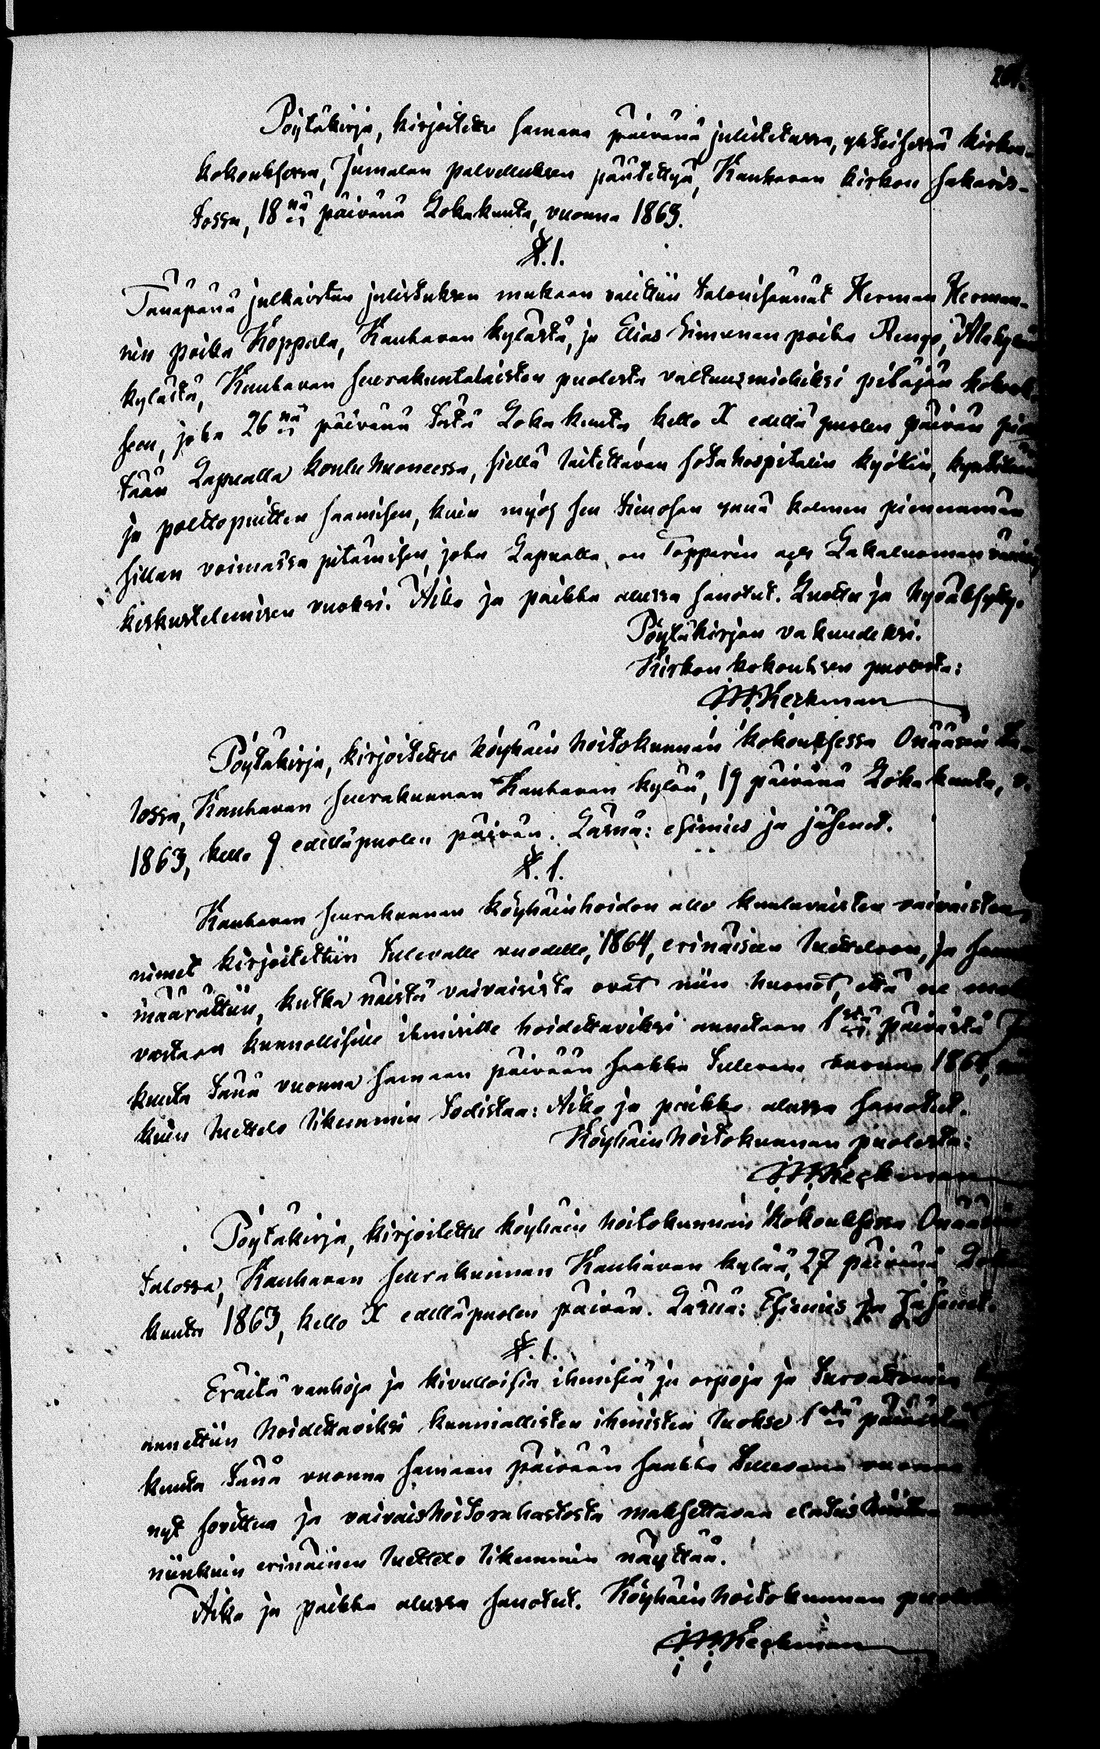 Pöytäkirja, kirjoitettu samana päivänä julistetussa, yhteisessä kirkon-
kokouksessa, Jumalan palvelluksen päätettyä, Kauhavan kirkon sakaris-
tossa, 18 nä päivänä Lokakuuta, vuonna 1863.
§. 1.
Tänäpänä julkaistun julistuksen mukaan valittiin talonisännät Herman Herman-
nin poika Koppala, Kauhavan kylästä, ja Elias Simonan poika Rengo,
kylästä, Kauhavan seurakuntalaisten puolesta valtuusmiehiksi pitäjän
seen, joka 26 nä päivänä tätä Lokakuuta kello X edellä puolen päivän
tään Lapualla kouluhuoneessa, siellä laitettavan sotahospitalin kyökin,
ja polttopuitten saamisen, kuin myös sen Simosen ynnä kolmen pienemmän
sillan voimassa pitämisen, joka Lapualla on Topparin
keskustelemisen vuoksi. Aika ja paikka alussa sanotut. Luettu ja hyväksytty.
Pöytäkirjan vakuudeksi.
Kirkon kokouksen puolesta:
Kerkman
Pöytäkirja, kirjoitettu köyhäin hoitokunnan kokouksessa
lossa, Kauhavan seurakunnan Kauhavan kylää, 19 päivänä Lokakuuta, v.
1863, kello 9 edelläpuolen päivän. Läsnä: esimies ja jäsenet.
§. 1.
Kauhavan seurakunnan köyhäinhoidon alle kuuluvaisten vaivaisten
nimet kirjoitettiin tulevalle vuodelle, 1864, erinäiseen luetteloon, ja
määrättiin, kutka näistä vaivaisista ovat niin huonot, että ne
vastaan kunnollisille ihmisille hoidettaviksi annetaan 1 stä päivästä
kuuta tänä vuonna samaan päivään saakka tulevana vuonna 1864,
kuin luettelo likemmin todistaa: Aika ja paikka alussa sanotut.
Köyhäinhoitokunnan puolesta:
Kerkman
Pöytäkirja, kirjoitettu köyhäin hoitokunnan kokouksessa
talossa, Kauhavan seurakunnan Kauhavan kylää, 27 päivänä
kuuta 1863, kello X edelläpuolen päivän. Läsnä: Esimies ja Jäsenet.
§. 1.
Eräitä vanhoja ja kivulloisia ihmisiä ja orpoja ja turvattomia
annettiin hoidettaviksi kunniallisten ihmisten luokse 1 stä päivästä
kuuta tänä vuonna samaan päivään saakka tulevana vuonna
nyt sovittua ja vaivaishoitorahastosta maksettavaa
niinkuin erinäinen luettelo likemmin näyttää.
Aika ja paikka alussa sanotut. Köyhäinhoitokunnan
Kerkman